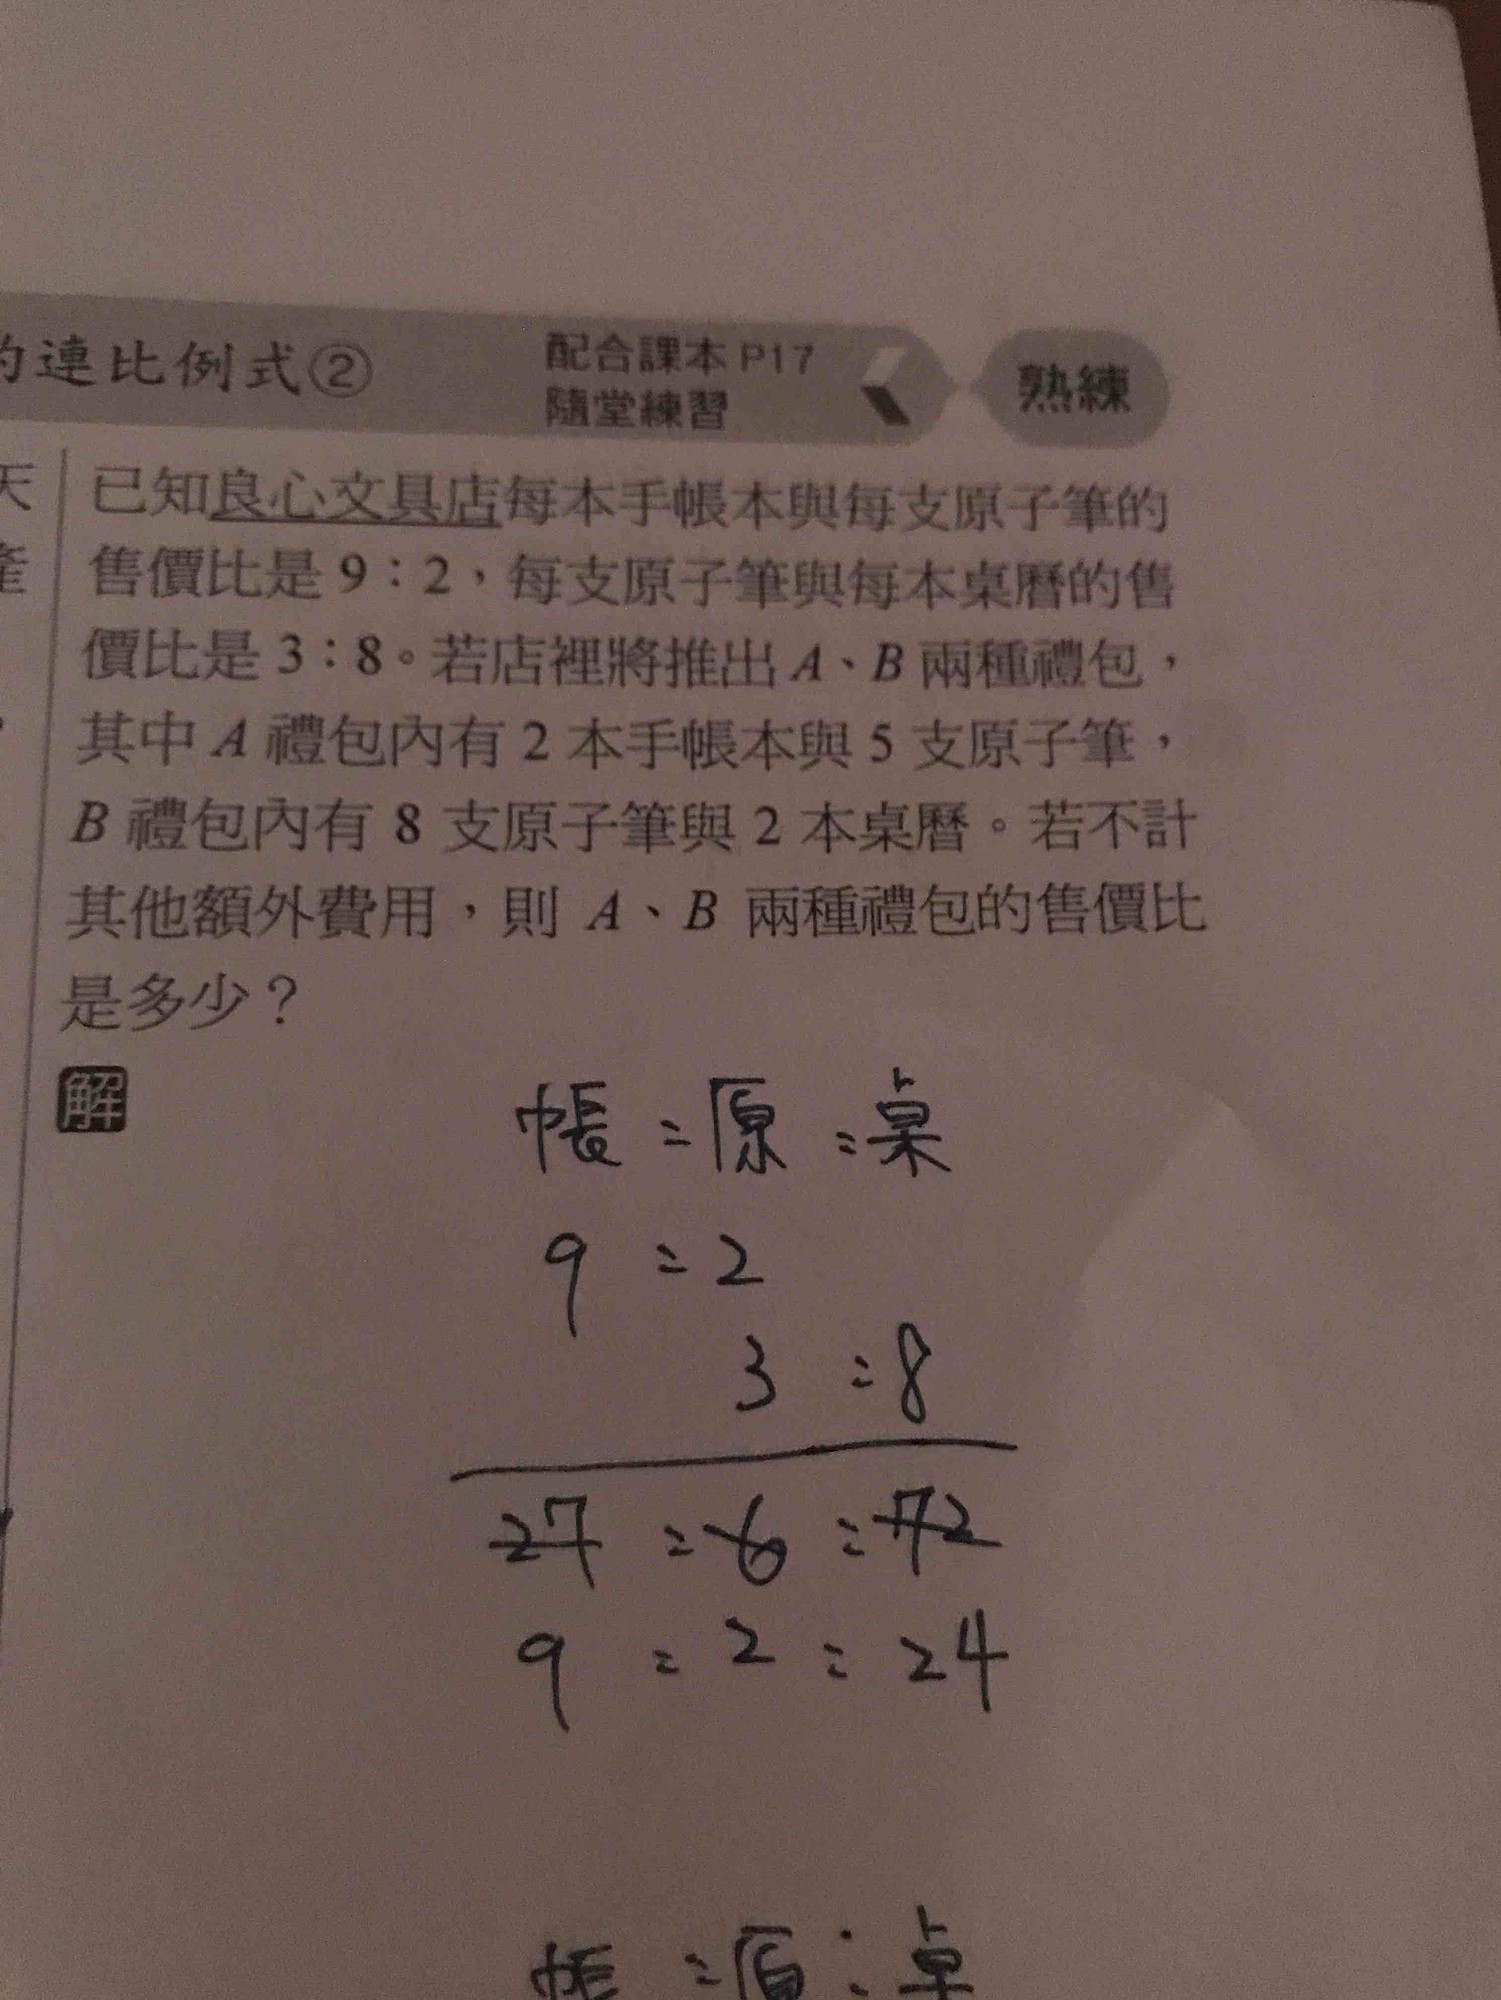 的連比例式② 配合課本 P17 熟練
隨堂練習
天
產
已知良心文具店每本手帳本與每支原子筆的
售價比是 9:2,每支原子筆與每本桌曆的售
價比是 3:8。若店裡將推出 A、B 兩種禮包,
其中 A 禮包內有 2 本手帳本與 5 支原子筆,
B 禮包內有 8 支原子筆與 2 本桌曆。若不計
其他額外費用,則 A、B 兩種禮包的售價比
是多少?
解
帳:原:桌
9:2
3:8
27:6:72
9:2:24
帳:原:桌